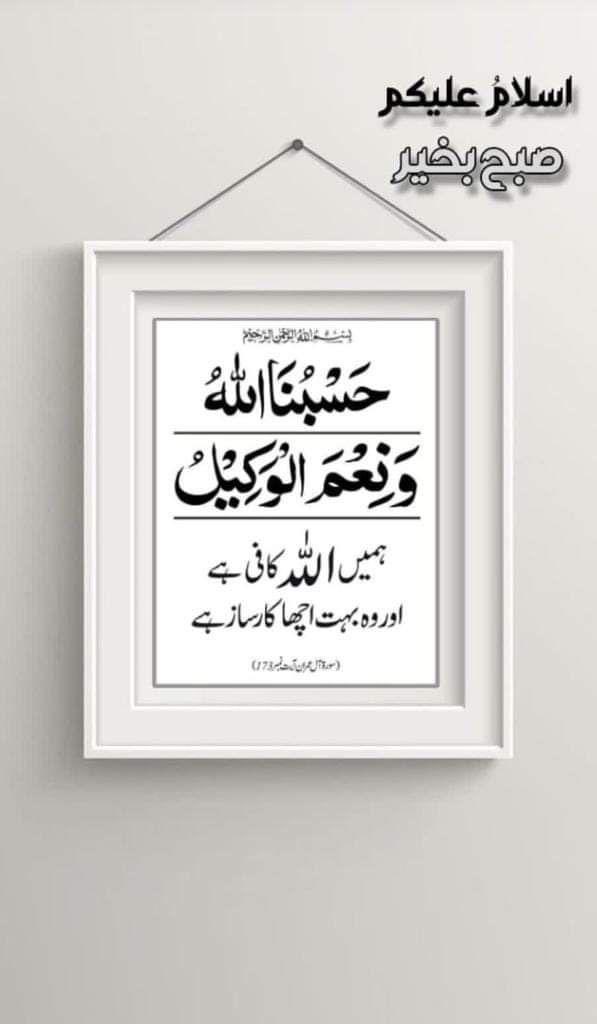 اسلامُ علیکم
صبح بخیر
بِسْمِ اللهِ الرَّحْمٰنِ الرَّحِيْمِ
حَسْبُنَا اللّٰهُ
وَنِعْمَ الْوَكِيْلُ
ہمیں اللہ کافی ہے
اور وہ بہت اچھا کارساز ہے
(سورۃ آل عمران آیت نمبر 173)